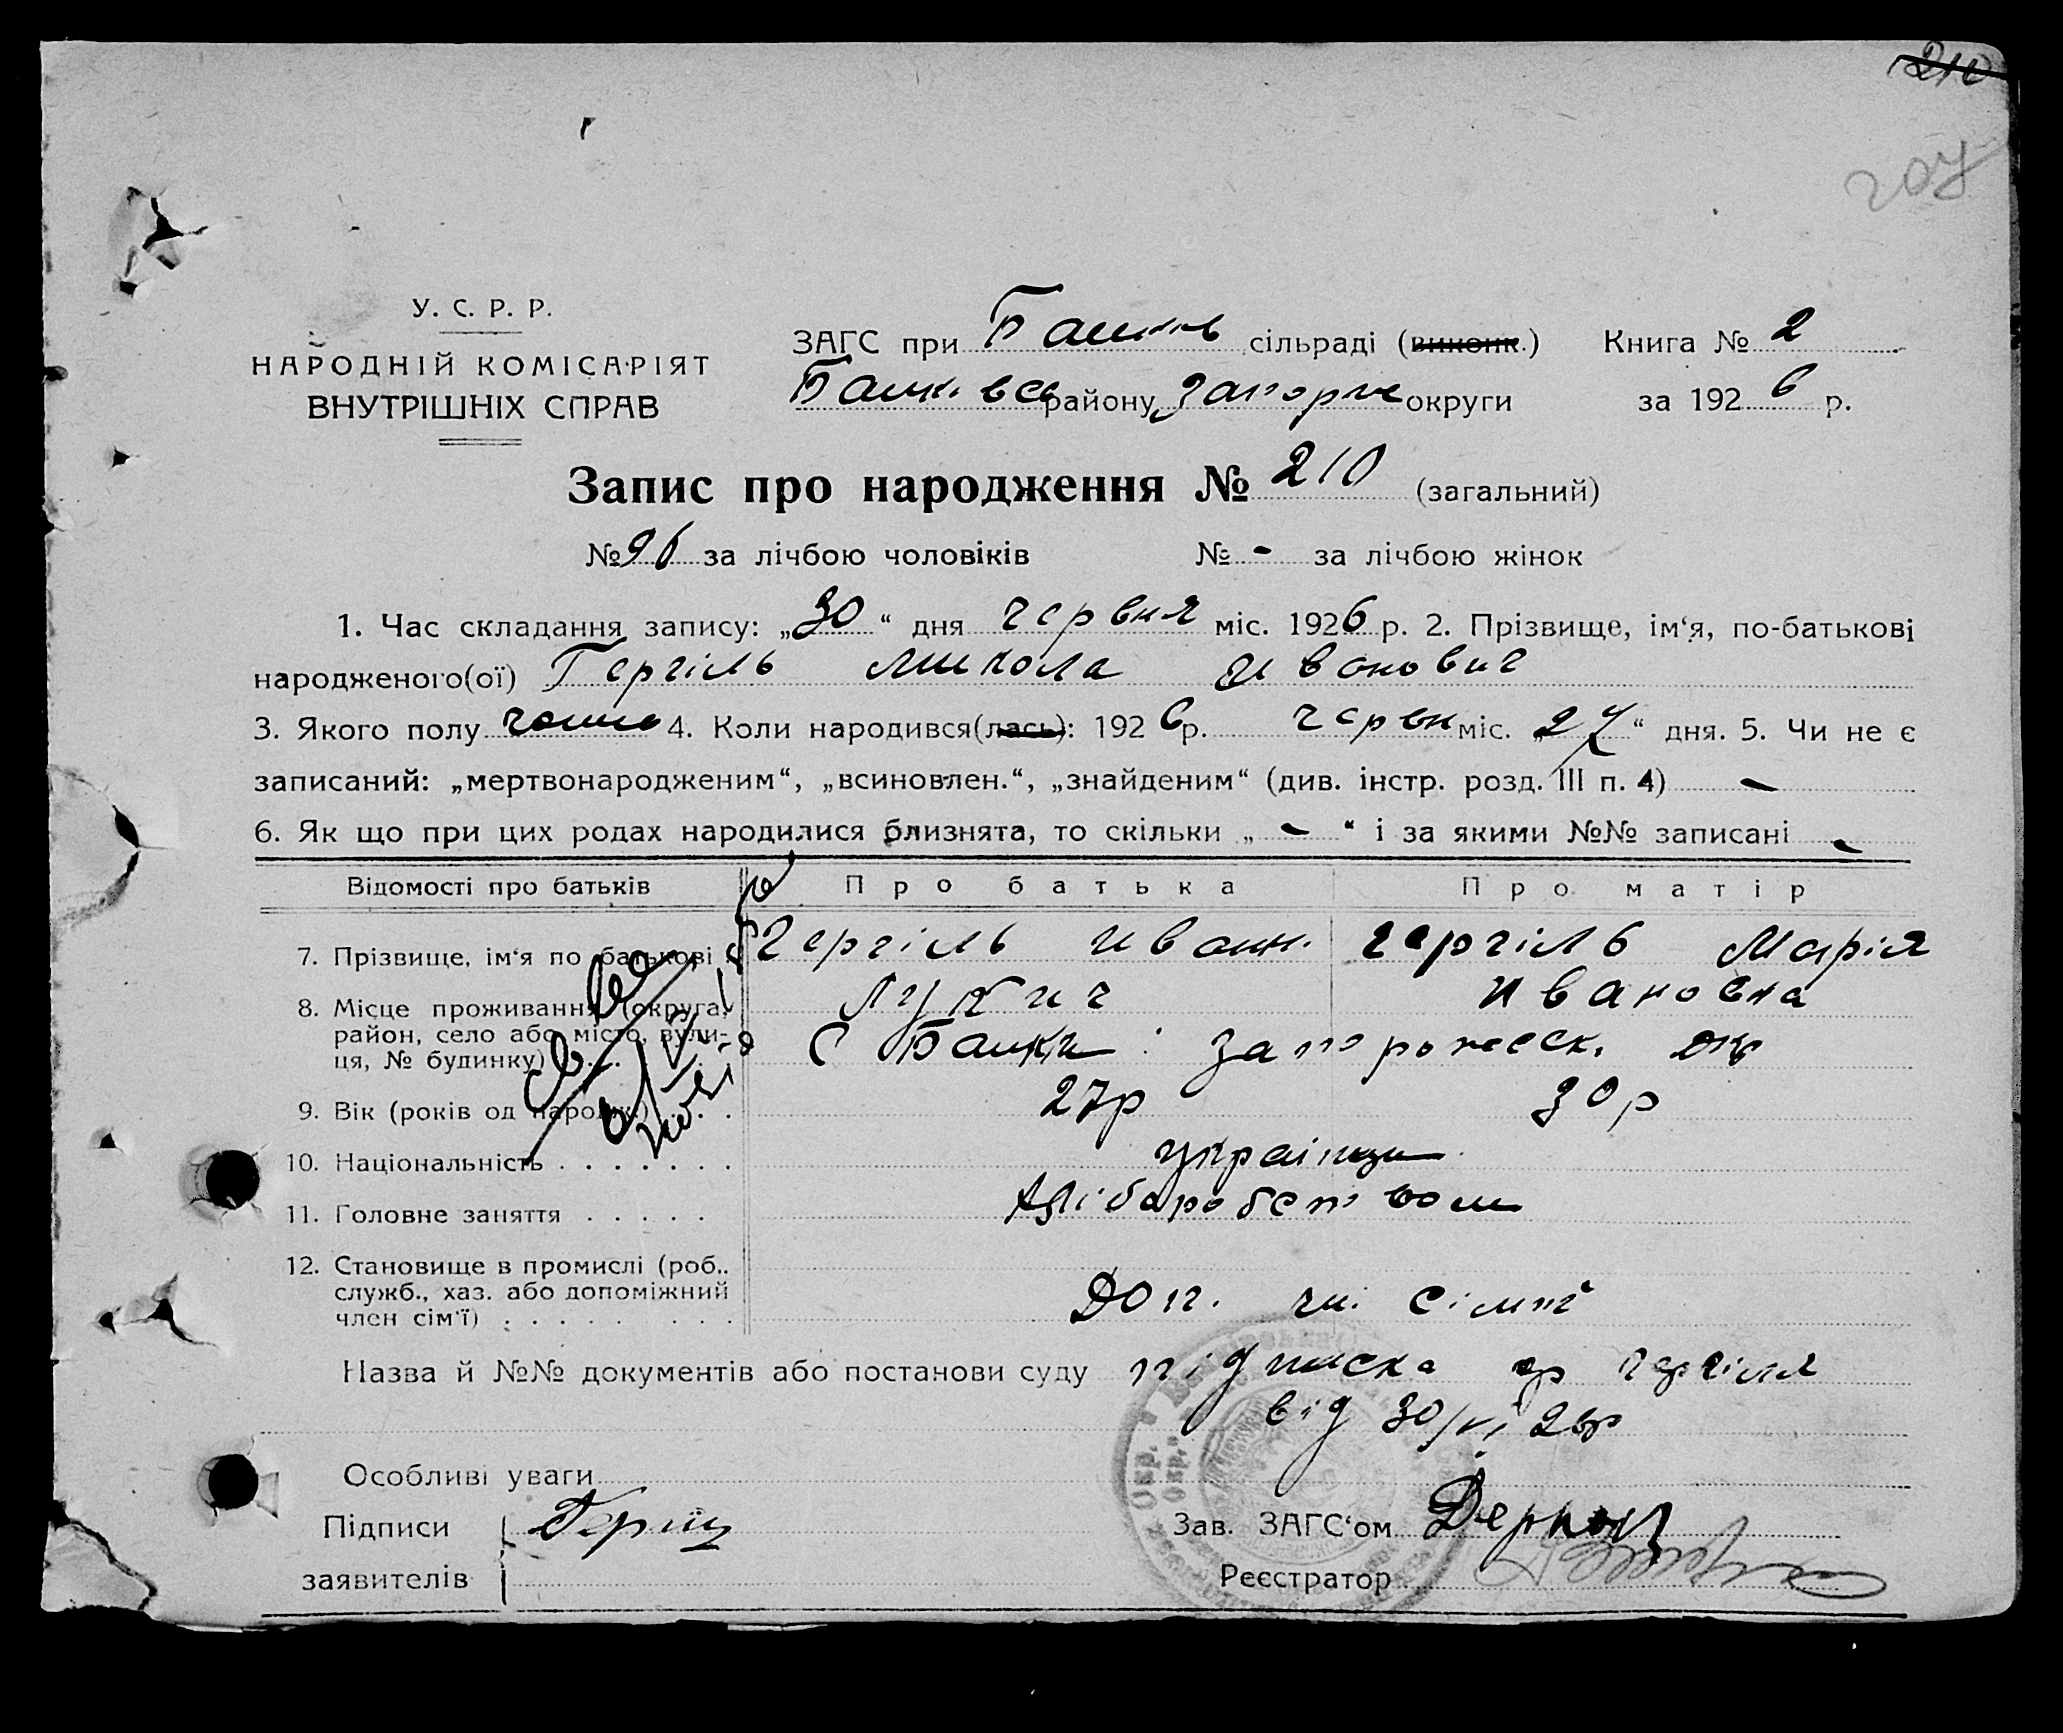 210
207
У. С. Р. Р.
НАРОДНІЙ КОМІСАРІЯТ
ВНУТРІШНІХ СПРАВ
ЗАГС при сільраді (виконк.) Книга № 2
району Запорж округи за 1926 р.
Запис про народження № 210 (загальний)
№ 96 за лічбою чоловіків № - за лічбою жінок
1. Час складання запису: „30“ дня червня міс. 1926 р. 2. Прізвище, ім‘я, по-батькові
народженого(ої) Гергіль Микола Иванович
3. Якого полу 4. Коли народився(лась): 1926 р. червн міс. „27“ дня. 5. Чи не є
записаний: „мертвонародженим“, „всиновлен.“, „знайденим“ (див. інстр. розд. III п. 4) -
6. Як що при цих родах народилися близнята, то скільки „ - “ і за якими №№ записані -
Відомості про батьків Про батька Про матір
7. Прізвище, ім‘я по батькові Гергіль Иван. Гергіль Марія
Лукич Ивановна
8. Місце проживання (округа,
район, село або місто, вули-
ця, № будинку) С Запорожеск. окр
9. Вік (років од народж.) 27р 30р
10. Національність українци
11. Головне заняття Хліборобством
12. Становище в промислі (роб..
служб., хаз. або допоміжний
член сім‘ї) Доп. чл. сімї
Назва й №№ документів або постанови суду підписка гр Гергіля
від 30/VI 26р
Особливі уваги
Підписи
заявителів
Зав. ЗАГС‘ом
Реєстратор